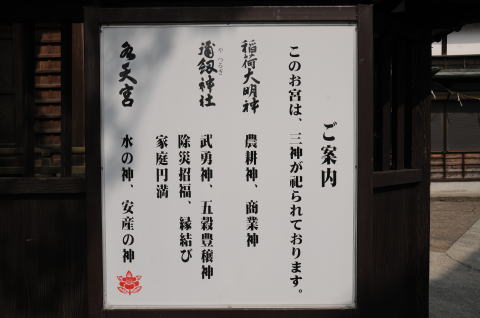 ご案内
このお宮は、三神が祀られております。
稲荷大明神 農耕神、商業神
彌釼神社 武勇神、五穀豊穣神
やつるぎ
除災招福、縁結び
家庭円満
水天宮 水の神、安産の神